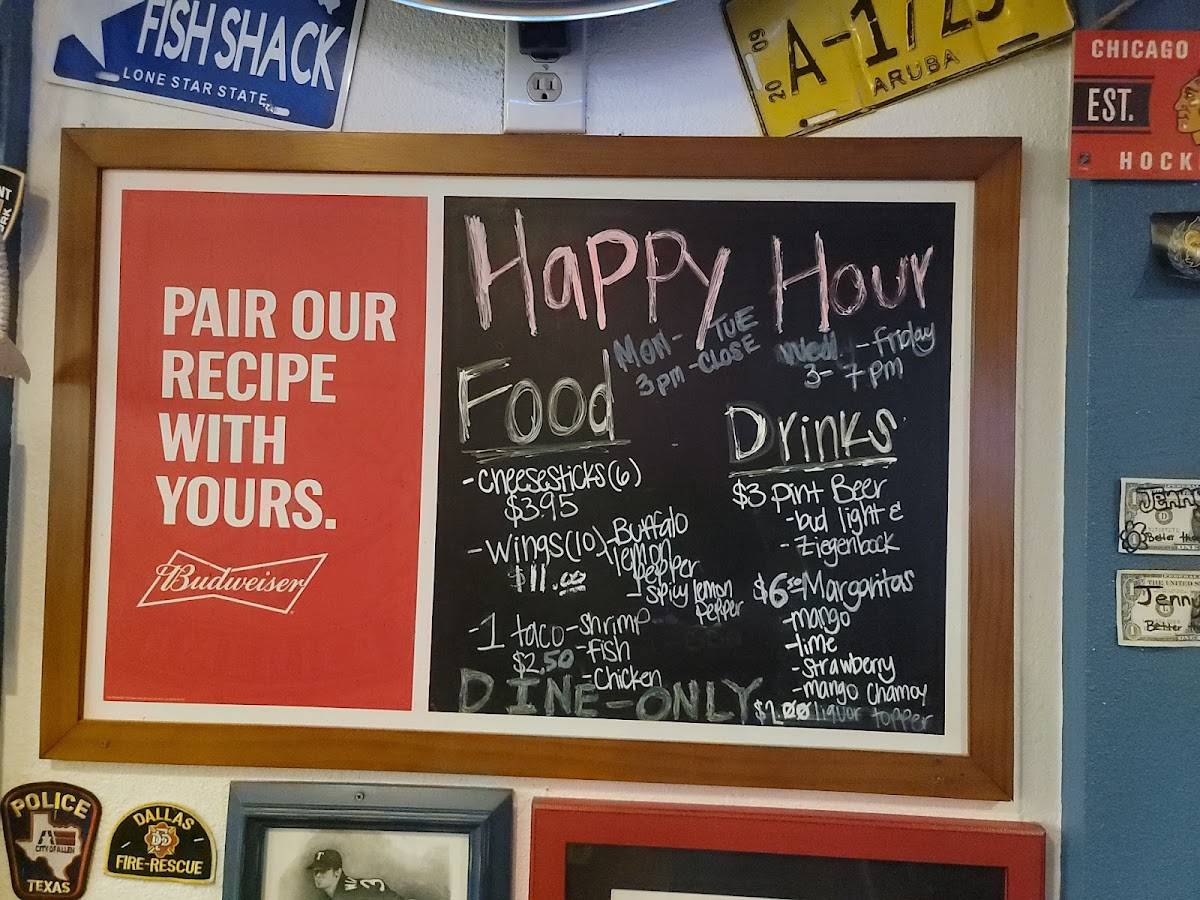 FISH SHACK
LONE STAR STATE
20 09
A-172
ARUBA
CHICAGO
EST.
HOCK
PAIR OUR
RECIPE
WITH
YOURS.
Budweiser
Happy Hour
Mon- TUE
3pm-CLOSE
Wed. - Friday
3- 7pm
Food
-cheesesticks(6)
$3.95
-wings(10)-Buffalo
lemon
pepper
$11.00
-spicy lemon
pepper
-1 taco-shrimp
$2.50 -fish
-chicken
Drinks
$3 pint Beer
-bud light &
-Ziegenbock
$6.50-Margaritas
-mango
-lime
-strawberry
-mango chamoy
$1.00 liquor topper
DINE-ONLY
POLICE
CITY OF ALLEN
TEXAS
DALLAS
FIRE-RESCUE
Jenn
Better
Jenny
Better